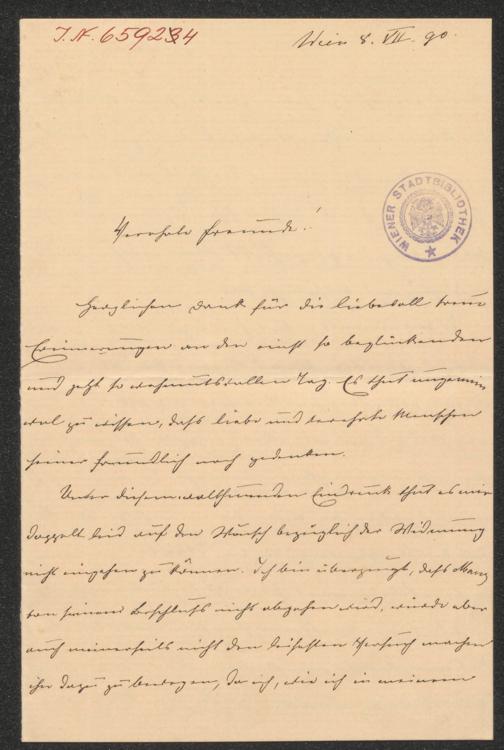 I. N. 65924
Wien 8. VII. 90.
WIENER STADTBIBLIOTHEK
Verehrte Freunde!
Herzlichen Dank für die liebevoll treue
Erinnerungen an den einst so beglückenden
und jetzt so wehmutsvollen Tag. Es thut ungemein
wol zu wissen, daß liebe und verehrte Menschen
seiner freundlich noch gedenken.
Unter diesem wolthuenden Eindruck thut es mir
doppelt leid auf den Wunsch bezüglich der Widmung
nicht eingehen zu können. Ich bin überzeugt, daß
von seinem Beschluß nicht abgehen wird, würde aber
auch meinerseits nicht den leisesten Versuch machen
ihn dazu zu bewegen, da ich, wie ich in meinem